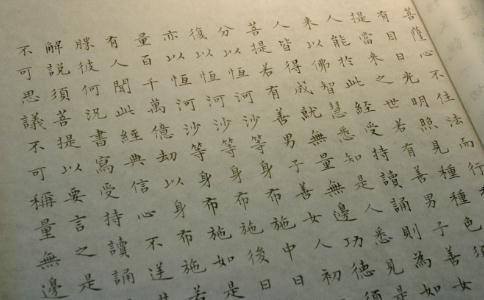 菩薩心不住法而行
有目日光明照見種種色須
提當來之世若有善男子善女
人能於此經受持讀誦則為如
來以佛智慧悉知是人悉見是
人皆得成就無量無邊功德
菩提若有善男子善女人初日
分以恆河沙等身布施中日
復以恆河沙等身布施後日
亦以恆河沙等身布施如是
量百千萬億劫以身布施若
有人聞此經典信心不逆其
勝彼何況書寫受持讀誦
解說須菩提以要言之是
不可思議不可稱量無邊